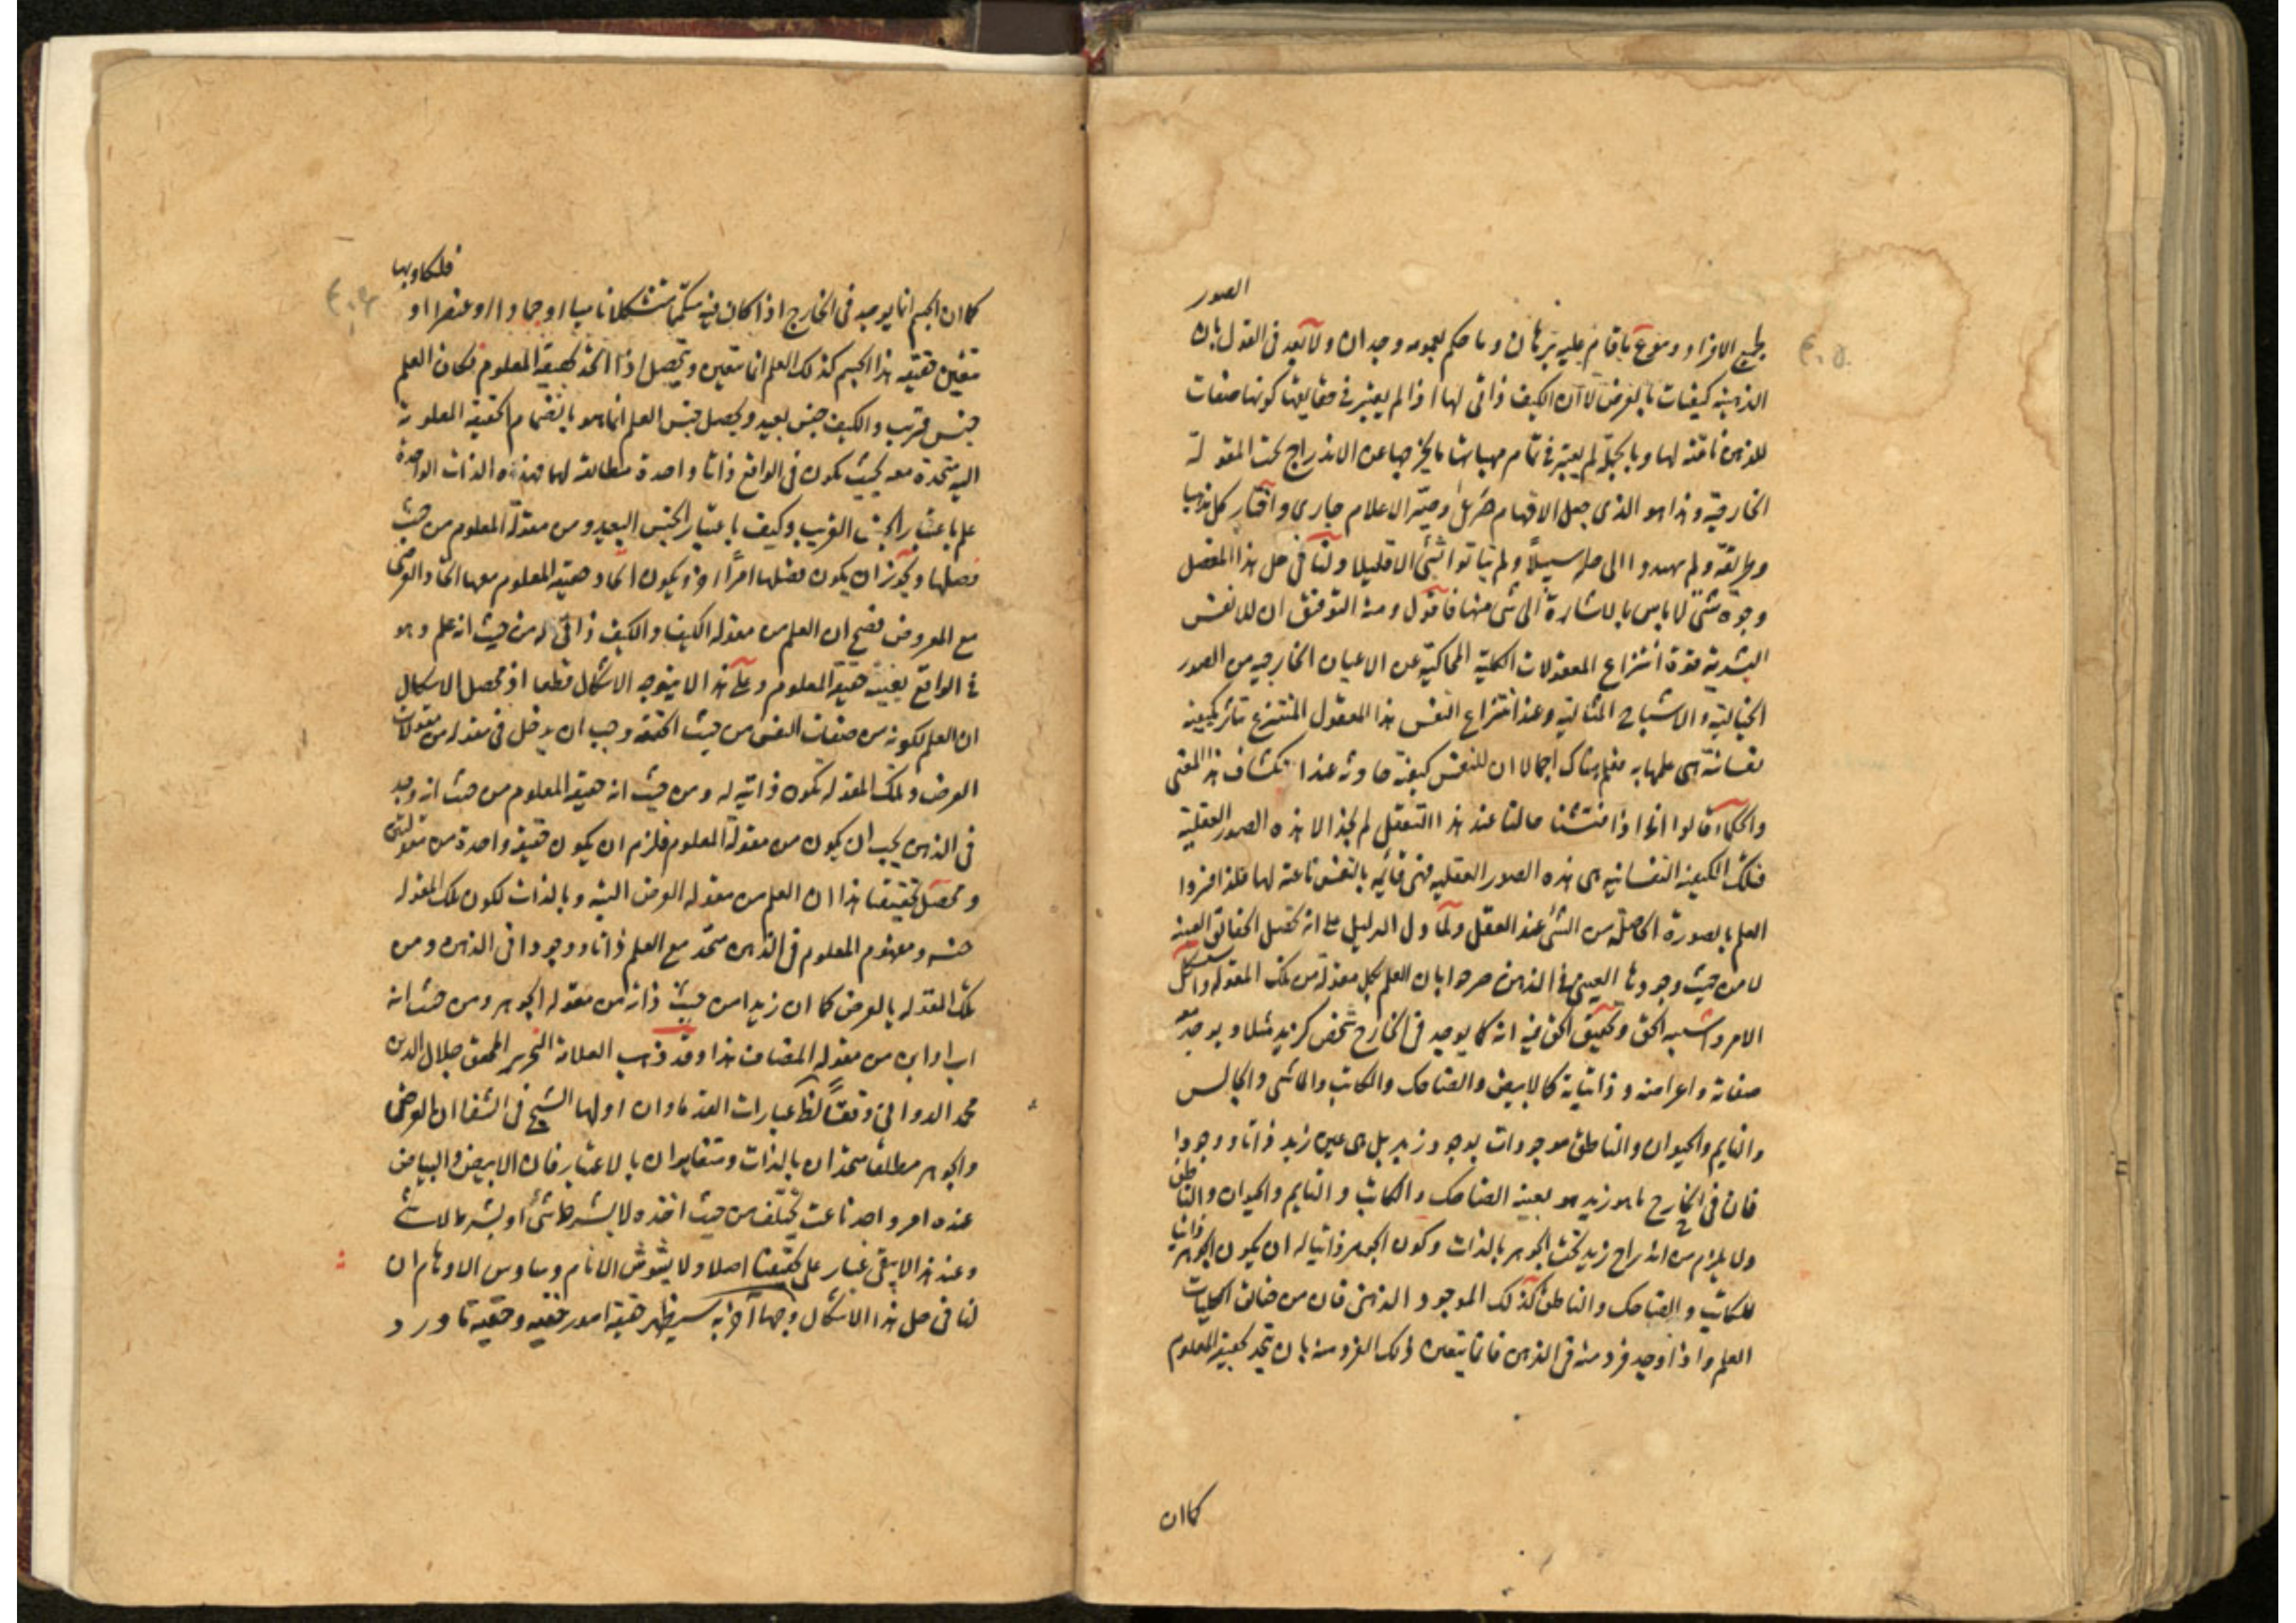 الصور
بجميع الافراد ووقوع ما قام عليه برهان وما حكم بعمومه وجدان ولا بعد فى القول بان
الذهنية كيفيات بالعرض لا ان الكيف ذاتى لها اذا لم يعتبر فى حقايقها كونها صفات
للذهن ناعتة لها وبالجملة لم يعتبر فى تمام مهياتها ما يخرجها عن الاندراج تحت المقولة
الخارجية وهذا هو الذى جعل الافهام وصير الاعلام حيارى واختار كل مذهبا
وطريقة ولم يهتدوا الى حله سبيلا ولم ياتوا بشئ الا قليلا ولنا فى حل هذا المعضل
وجوه شتى لا باس بالاشارة الى شئ منها فاقول ومنه التوفيق ان للنفس
البشرية قوة انتزاع المعقولات الكلية المحاكية عن الاعيان الخارجية من الصور
الخيالية والاشباح المثالية وعند انتزاع النفس هذا المعقول المنتزع تتاثر بكيفية
نفسانية هى علمها به فعلم هناك اجمالا ان للنفس كيفية حادثة عند انكشاف هذا المعنى
والحكماء قالوا انا اذا فتشنا حالنا عند هذا التعقل لم نجد الا هذه الصور العقلية
فتلك الكيفية النفسانية هى هذه الصور العقلية فهى قائمة بالنفس ناعتة لها فلذا فسروا
العلم بالصورة الحاصلة من الشئ عند العقل ولما دل الدليل على انه تحصل الحقائق العينية
لا من حيث وجودها العينى فى الذهن صرحوا بان العلم بكل مقولة من تلك المقولة واشكل
الامر واشتبه الحق وتحقيق الحق فيه انه كما يوجد فى الخارج شخص كزيد مثلا ويوجد معه
صفاته واعراضه وذاتياته كالابيض والضاحك والكاتب والماشى والجالس
والنايم والحيوان والناطق موجودات بوجود زيد بل هى عين زيد ذاتا ووجودا
فان فى الخارج ما هو زيد هو بعينه الضاحك والكاتب والنايم والحيوان والناطق
ولا يلزم من اندراج زيد تحت الجوهر بالذات وكون الجوهر ذاتيا له ان يكون الجوهر ذاتيا
للكاتب والضاحك والناطق كذلك الموجود الذهنى فان من الكليات
العلم واذا وجد فرد منه فى الذهن فانما يتعين ذلك الفرد منه بان يتحد بحقيقة المعلوم
كما ان
فلكا وبها
كما ان الجسم انما يوجد فى الخارج اذا كان فيه متكمما متشكلا ناميا او جمادا او عنصرا او
متعين حقيقة هذا الجسم كذلك العلم انما يتعين ويتحصل اذا اتحد بحقيقة المعلوم فكان العلم
جنس قريب والكيف جنس بعيد وتحصل جنس العلم انما هو بانضمام الحقيقة المعلومة
اليه متحدة معه بحيث تكون فى الواقع ذاتا واحدة مطابقة لهما فهذه الذات الواحدة
علم باعتبار الجنس القريب وكيف باعتبار الجنس البعيد ومن مقولة المعلوم من حيث
فصلها ويجوز ان يكون فصلها امرا اخر ويكون اتحاد حقيقة المعلوم معها اتحاد العرضى
مع المعروض فصح ان العلم من مقولة الكيف والكيف ذاتى له من حيث انه علم وهو
فى الواقع بعينه حقيقة المعلوم وعلى هذا لا يتوجه الاشكال قطعا اذ محصل الاشكال
ان العلم لكونه من صفات النفس من حيث الحقيقة وجب ان يدخل فى مقولة من مقولات
العرض وتلك المقولة تكون ذاتية له ومن حيث انه حقيقة المعلوم من حيث انه وجد
فى الذهن يجب ان يكون من مقولة المعلوم فلزم ان يكون حقيقة واحدة من مقولتين
ومحصل تحقيقنا هذا ان العلم من مقولة العرض البتة وبالذات لكون تلك المقولة
جنسه ومفهوم المعلوم فى الذهن متحد مع العلم ذاتا ووجودا فى الذهن ومن
تلك المقولة بالعرض كما ان زيدا من حيث ذاته من مقولة الجوهر ومن حيث انه
اب او ابن من مقولة المضاف هذا وقد ذهب العلامة النحرير المحقق جلال الدين
محمد الدوانى وفقا لظاهر عبارات القدماء وان اولها الشيخ فى الشفا ان العرضى
والجوهر مطلقا متحدان بالذات ومتغايران بالاعتبار فان الابيض والبياض
عنده امر واحد ناعت يختلف من حيث اخذه لا بشرط شئ او بشرط لا شئ
وعند هذا لا يبقى غبار على تحقيقنا اصلا ولا يشوش الانام وساوس الاوهام ان
لنا فى حل هذا الاشكال وجها آخر به سيظهر حقيقة امور خفية وحقيقة ما ورد